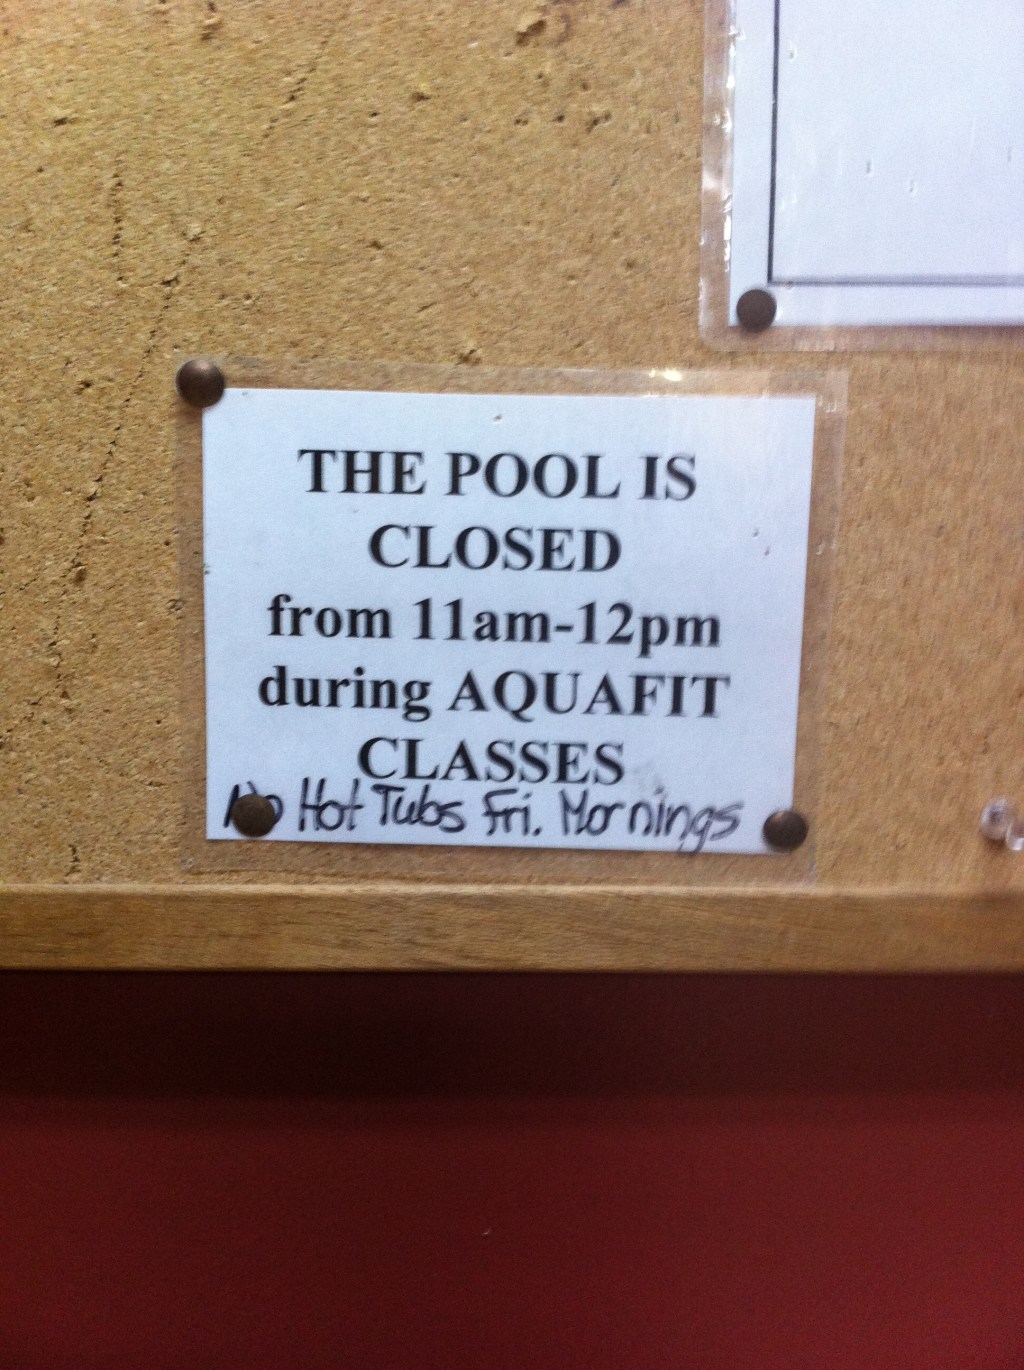 THE POOL IS
CLOSED
from 11am-12pm
during AQUAFIT
CLASSES
No Hot Tubs Fri. Mornings